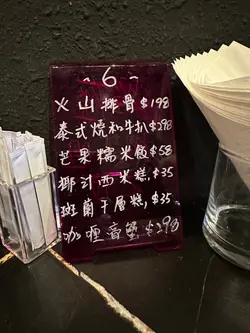 ~6~
火山排骨$198
泰式燒和牛扒,$298
芒果糯米飯$58
椰汁西米糕,$35
斑蘭千層糕,$35
咖喱香蟹$298